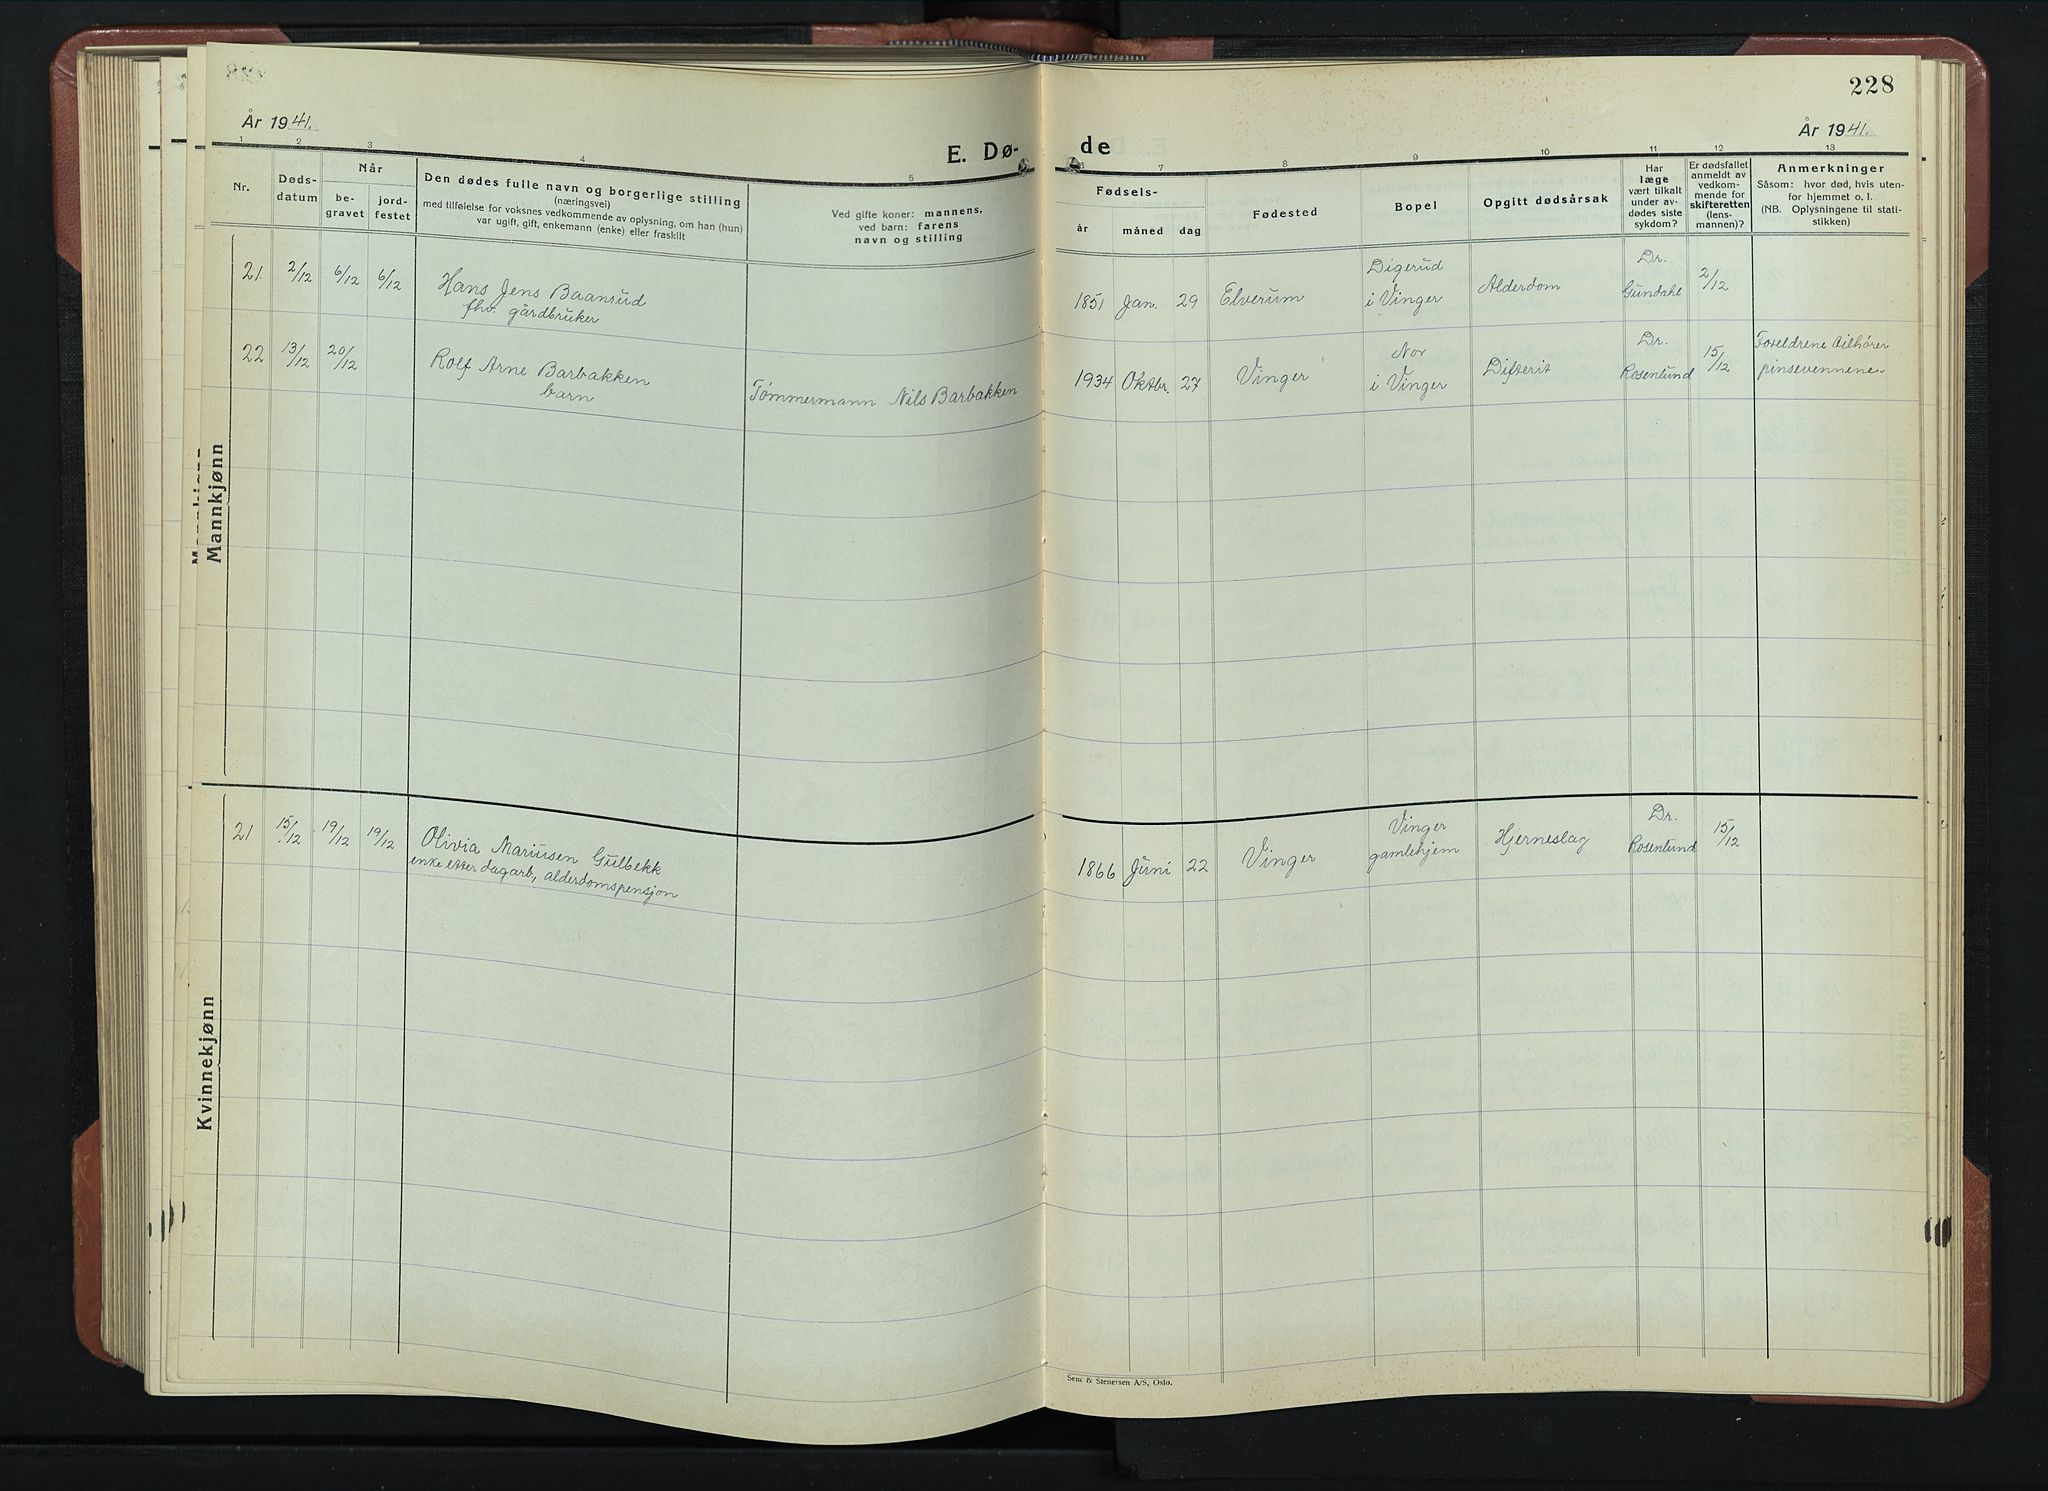 228
År 1941.
År 1941.
E. Dø-
de
1 2 3 4 5 6 7 8 9 10 11 12 13
Nr.
Døds-
datum
Når
be-
gravet
jord-
festet
Den dødes fulle navn og borgerlige stilling
(næringsvei)
med tilføielse for voksnes vedkommende av oplysning, om han (hun)
var ugift, gift, enkemann (enke) eller fraskilt
Ved gifte koner: mannens,
ved barn: farens
navn og stilling
Fødsels-
år
måned
dag
Fødested
Bopel
Opgitt dødsårsak
Har
læge
vært tilkalt
under av-
dødes siste
sykdom?
Er dødsfallet
anmeldt av
vedkom-
mende for
skifteretten
(lens-
mannen)?
Anmerkninger
Såsom: hvor død, hvis uten-
for hjemmet o. l.
(NB. Oplysningene til stati-
stikken)
Mannkjønn
21 2/12 6/12 6/12 Hans Jens Baansud
fhv. gårdbruker
1851 Jan. 29 Elverum
Digerud
i Vinger
Alderdom
Dr.
Gundahl
2/12
22 13/12 20/12 Rolf Arne Barbakken
barn
Tømmermann Nils Barbakken
1934 Oktbr. 27 Vinger
Nor
i Vinger
Difterit
Dr.
Rosenlund
15/12
Foreldrene tilhører
pinsevennene
Kvinnekjønn
21 15/12 19/12 19/12 Olivia Mariusen Gulbekk
enke etter dagarb., alderdomspensjon
1866 Juni 22 Vinger
Vinger
gamlehjem
Hjerneslag
Dr.
Rosenlund
15/12
Sem & Stenersen A/S, Oslo.